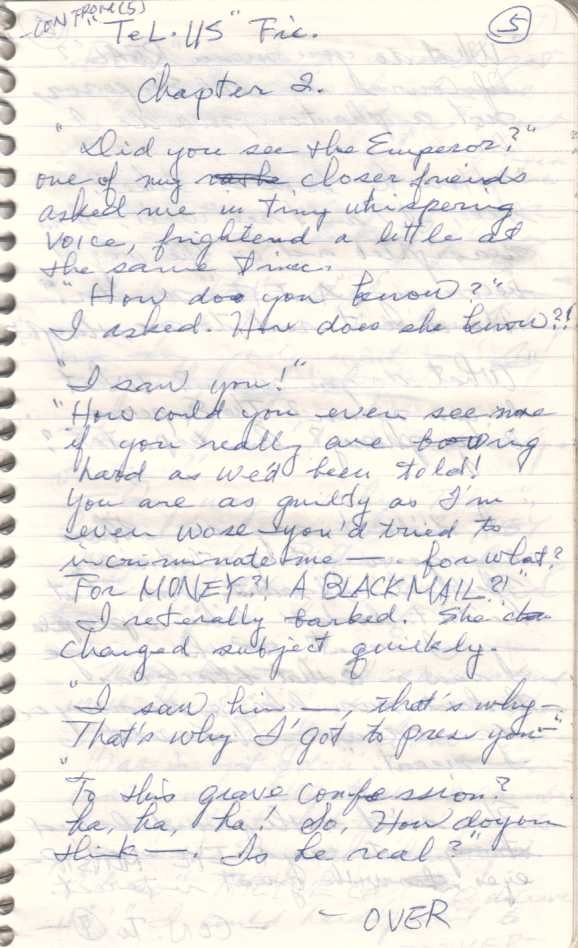 - CON FROM (5)
"TeL. US" Fic.
(5)
Chapter 2.
"Did you see the Emperor?"
one of my closer friends
asked me in tiny whispering
voice, frightend a little at
the same time.
"How doo you know?"
I asked. How does she know?!
"I saw you!"
"How could you even see me
if you really are bowing
hard as we'd been told!
You are as guilty as I'm
even wose you'd tried to
incriminate me — for what?
For MONEY?! A BLACK MAIL?!"
I reterally barked. She
changed subject quickly.
"I saw him —, that's why —
That's why I'got to press you —"
"To this grave confession?
ha, ha, ha! So, How do you
think —. Is he real?"
- OVER